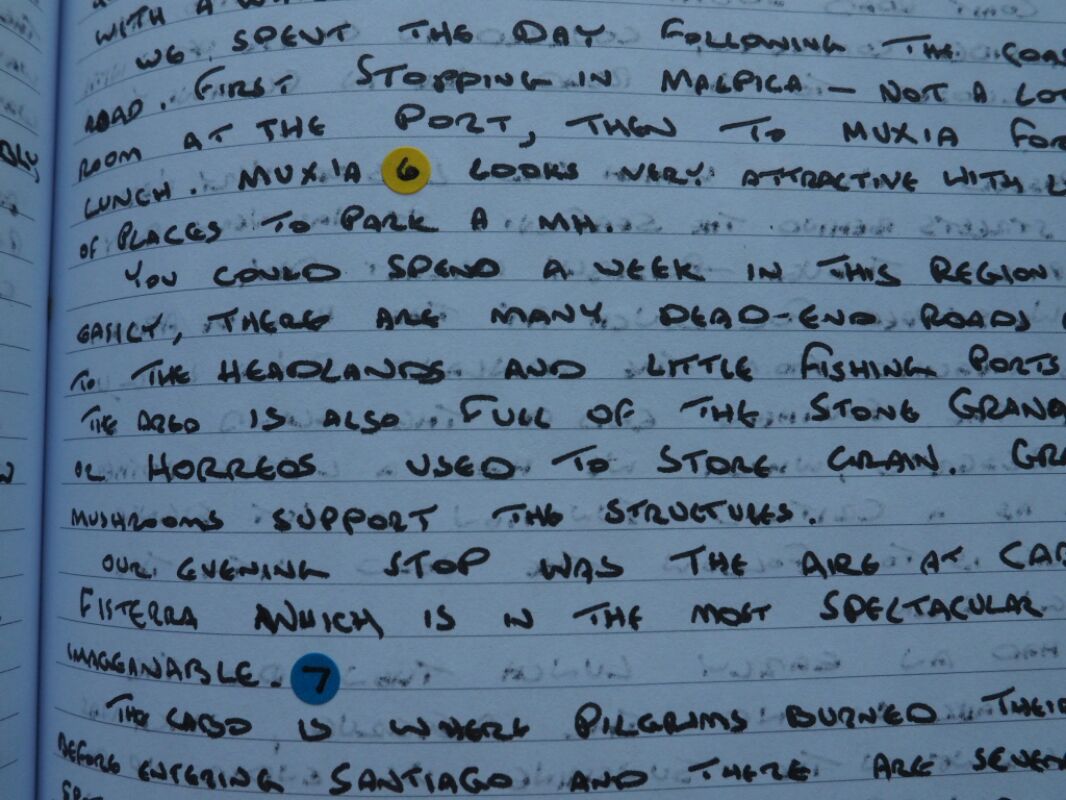 WITH A
WE SPENT THE DAY FOLLOWING THE COAS
ROAD. FIRST STOPPING IN MALPICA – NOT A LOT
ROOM AT THE PORT, THEN TO MUXIA FOR
LUNCH. MUXIA 6 LOOKS VERY ATTRACTIVE WITH L
OF PLACES TO PARK A MH.
YOU COULD SPEND A WEEK IN THIS REGION
EASILY, THERE ARE MANY DEAD-END ROADS
TO THE HEADLANDS AND LITTLE FISHING PORTS
THE AREA IS ALSO FULL OF THE STONE GRANA
OR HORREOS USED TO STORE GRAIN. GRA
MUSHROOMS SUPPORT THE STRUCTURES.
OUR EVENING STOP WAS THE AIRE AT CAB
FISTERRA WHICH IS IN THE MOST SPECTACULAR
IMAGGANABLE. 7
THE CABO IS WHERE PILGRIMS BURNED THEIR
BEFORE ENTERING SANTIAGO AND THERE ARE SEVER